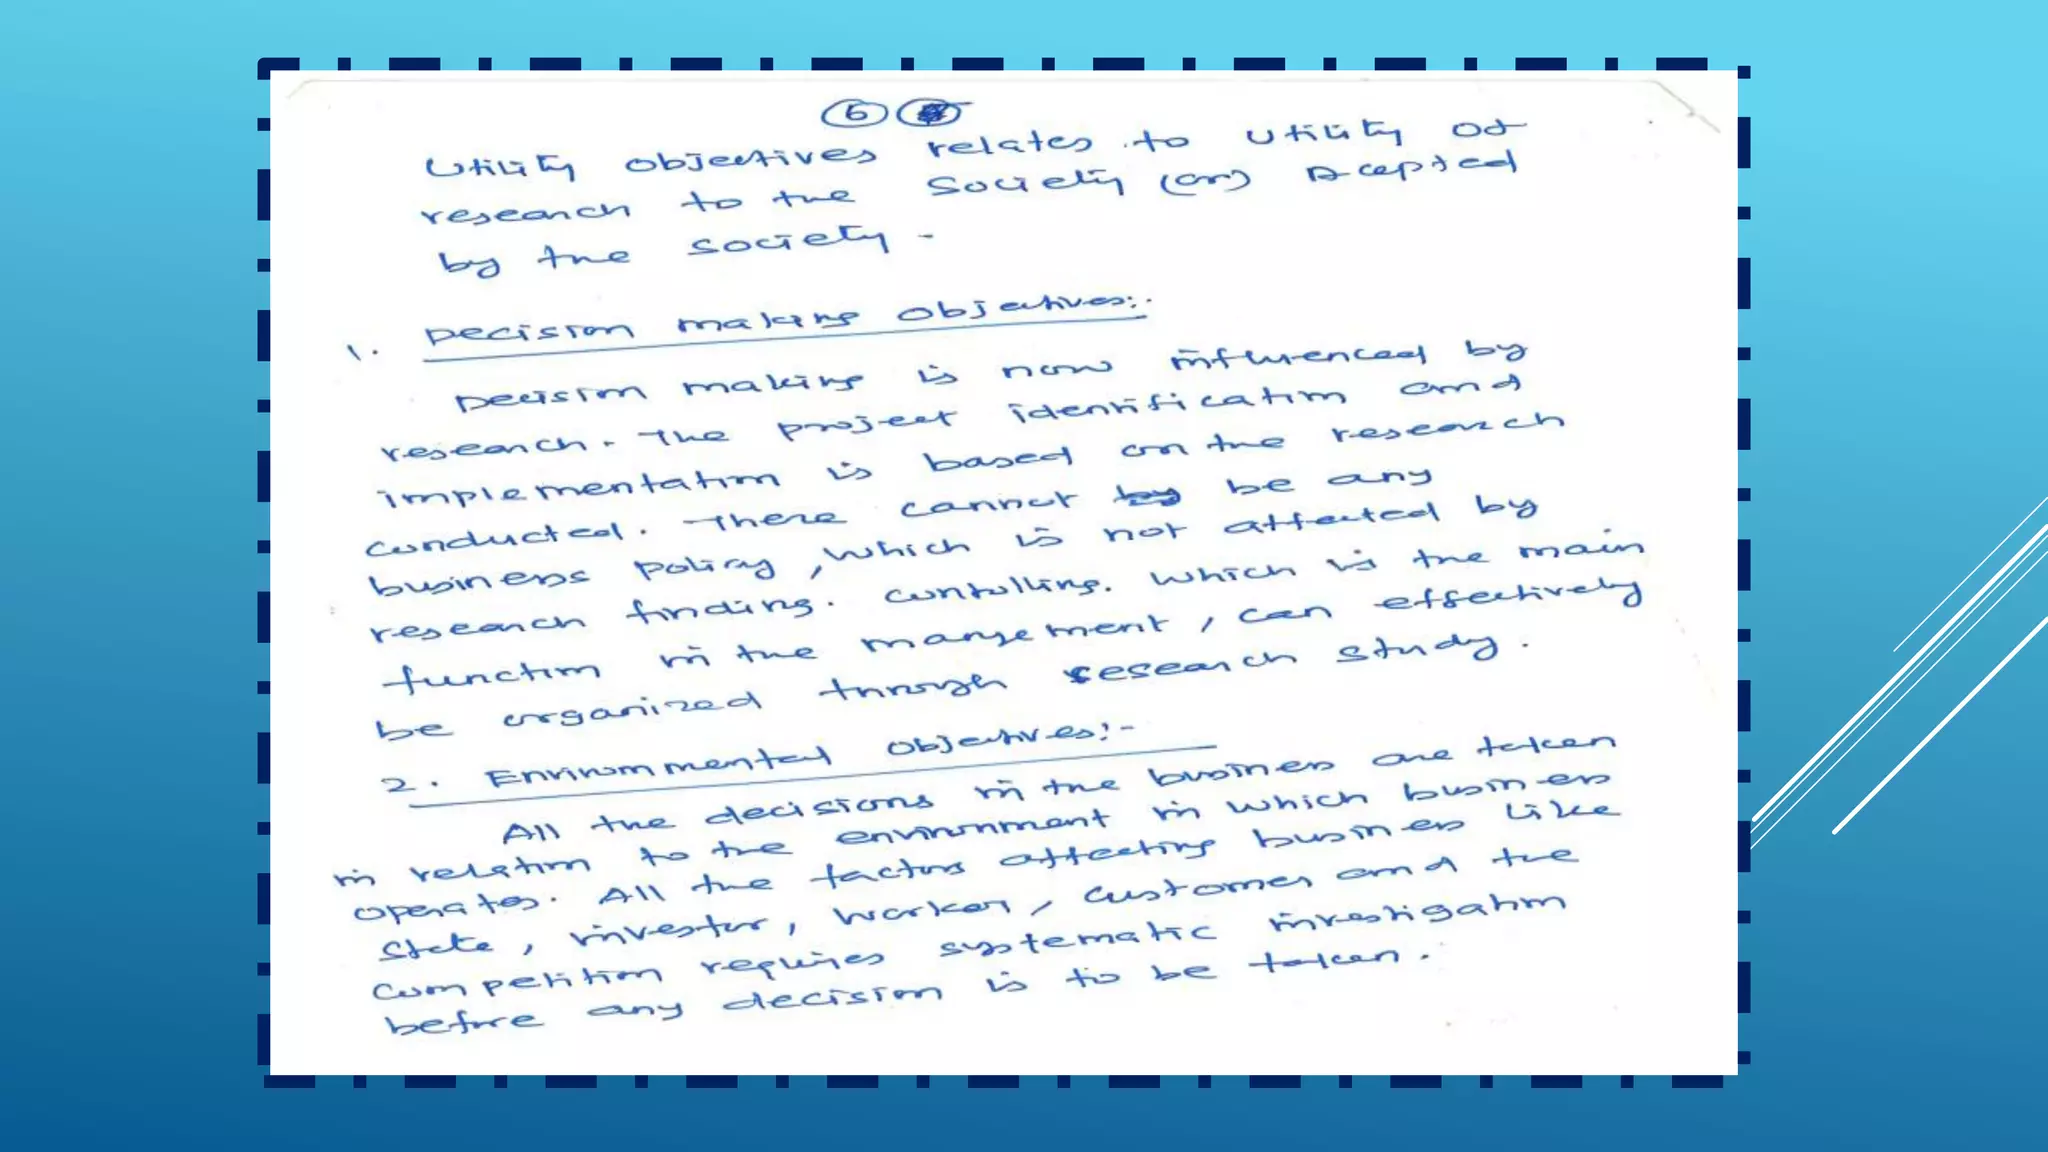 6
Utility objectives relates to utility of
research to the society (or) Acepted
by the society.
1. Decision making objectives:-
Decision making is now influenced by
research. The project identification and
implementation is based on the research
conducted. There cannot be any
business policy, which is not affected by
research finding. Controlling. Which is the main
function in the management, can effectively
be organized through research study.
2. Environmental objectives:-
All the decisions in the business are taken
in relation to the environment in which business
operates. All the factors affecting business like
State, investor, worker, customer and the
competition requires systematic investigation
before any decision is to be taken.